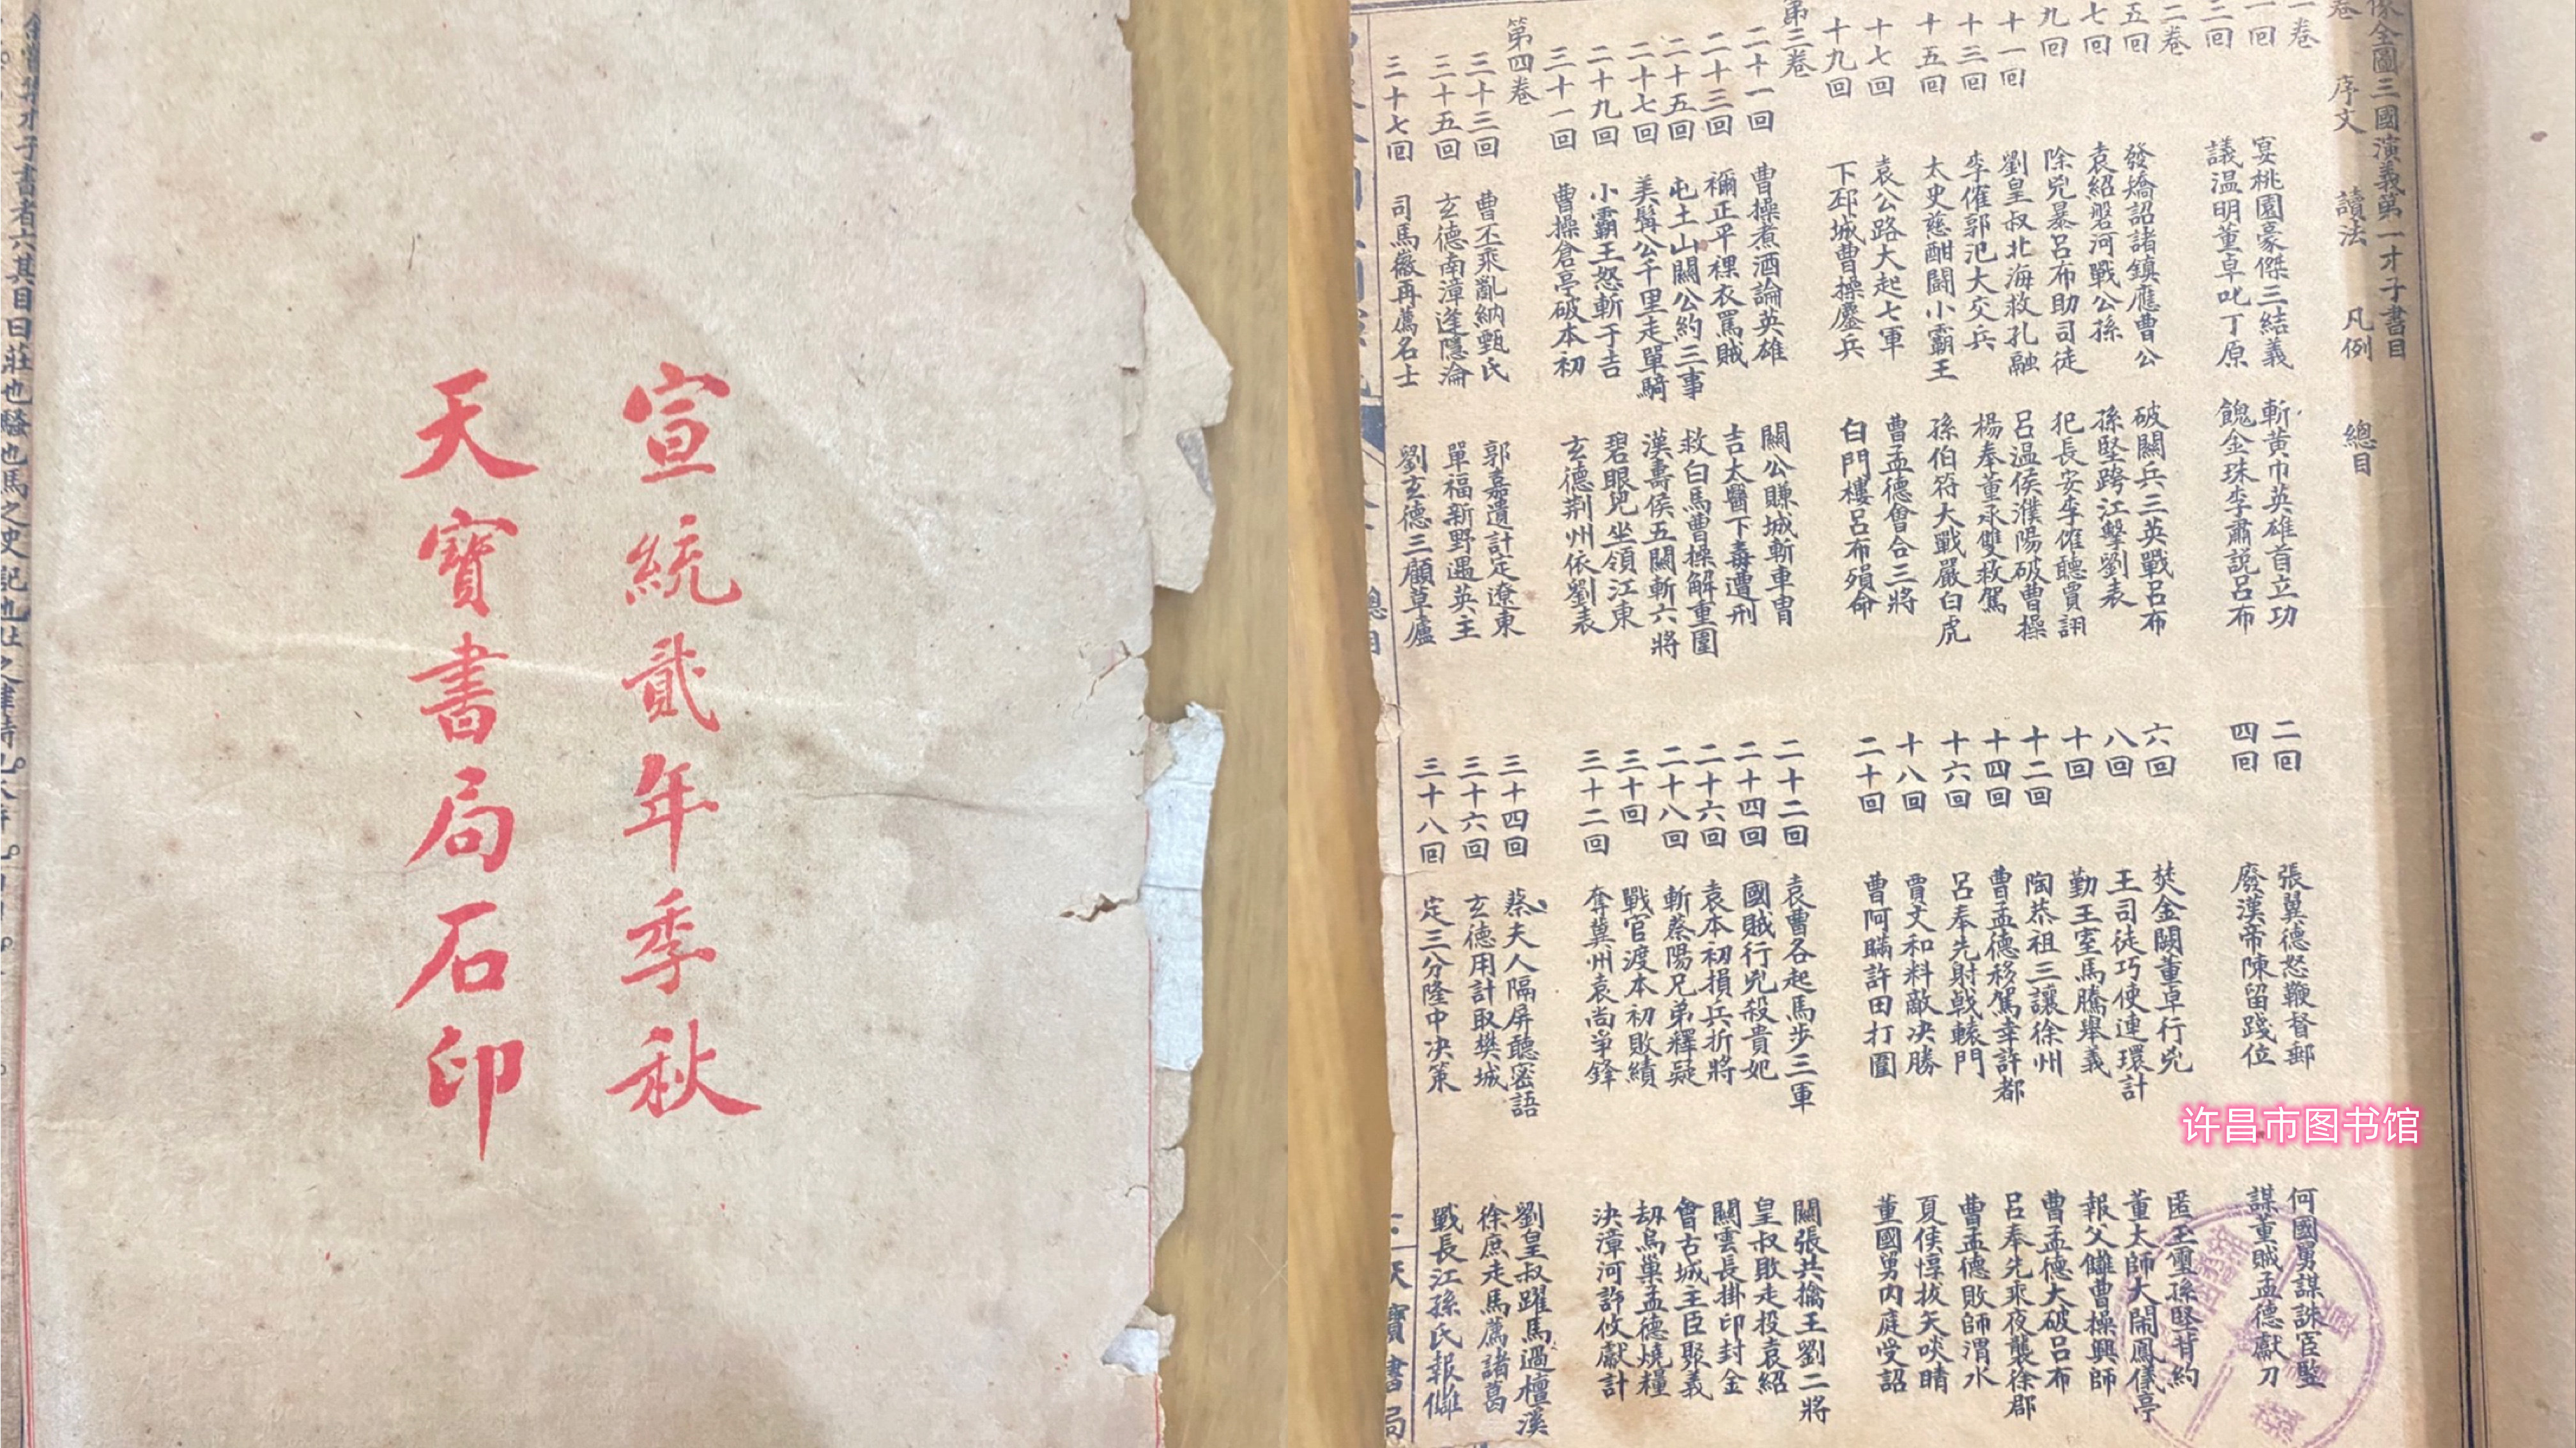 宣統貳年季秋
天寶書局石印
像全圖三國演義第一才子書目
卷 序文 讀法 凡例 總目
一卷
一回 宴桃園豪傑三結義 斬黃巾英雄首立功 二回 張翼德怒鞭督郵 何國舅謀誅宦豎
三回 議温明董卓叱丁原 餽金珠李肅説呂布 四回 廢漢帝陳留踐位 謀董賊孟德獻刀
二卷
五回 發矯詔諸鎮應曹公 破關兵三英戰呂布 六回 焚金闕董卓行兇 匿玉璽孫堅背約
七回 袁紹磐河戰公孫 孫堅跨江擊劉表 八回 王司徒巧使連環計 董太師大鬧鳳儀亭
九回 除兇暴呂布助司徒 犯長安李傕聽賈詡 十回 勤王室馬騰舉義 報父讎曹操興師
十一回 劉皇叔北海救孔融 呂温侯濮陽破曹操 十二回 陶恭祖三讓徐州 曹孟德大破呂布
十三回 李傕郭汜大交兵 楊奉董承雙救駕 十四回 曹孟德移駕幸許都 呂奉先乘夜襲徐郡
十五回 太史慈酣鬭小霸王 孫伯符大戰嚴白虎 十六回 呂奉先射戟轅門 曹孟德敗師淯水
十七回 袁公路大起七軍 曹孟德會合三將 十八回 賈文和料敵决勝 夏侯惇拔矢啖睛
十九回 下邳城曹操鏖兵 白門樓呂布殞命 二十回 曹阿瞞許田打圍 董國舅内庭受詔
第三卷
二十一回 曹操煮酒論英雄 關公賺城斬車胄 二十二回 袁曹各起馬步三軍 關張共擒王劉二將
二十三回 禰正平裸衣罵賊 吉太醫下毒遭刑 二十四回 國賊行兇殺貴妃 皇叔敗走投袁紹
二十五回 屯土山關公約三事 救白馬曹操解重圍 二十六回 袁本初損兵折將 關雲長掛印封金
二十七回 美髯公千里走單騎 漢壽侯五關斬六將 二十八回 斬蔡陽兄弟釋疑 會古城主臣聚義
二十九回 小霸王怒斬于吉 碧眼兒坐領江東 三十回 戰官渡本初敗績 刼烏巢孟德燒糧
三十一回 曹操倉亭破本初 玄德荆州依劉表 三十二回 奪冀州袁尚爭鋒 決漳河許攸獻計
第四卷
三十三回 曹丕乘亂納甄氏 郭嘉遺計定遼東 三十四回 蔡夫人隔屏聽密語 劉皇叔躍馬過檀溪
三十五回 玄德南漳逢隱淪 單福新野遇英主 三十六回 玄德用計取樊城 徐庶走馬薦諸葛
三十七回 司馬徽再薦名士 劉玄德三顧草廬 三十八回 定三分隆中决策 戰長江孫氏報讎
總目
天寶書局
才子書者六其目曰莊也騷也馬之史記也
许昌市图书馆